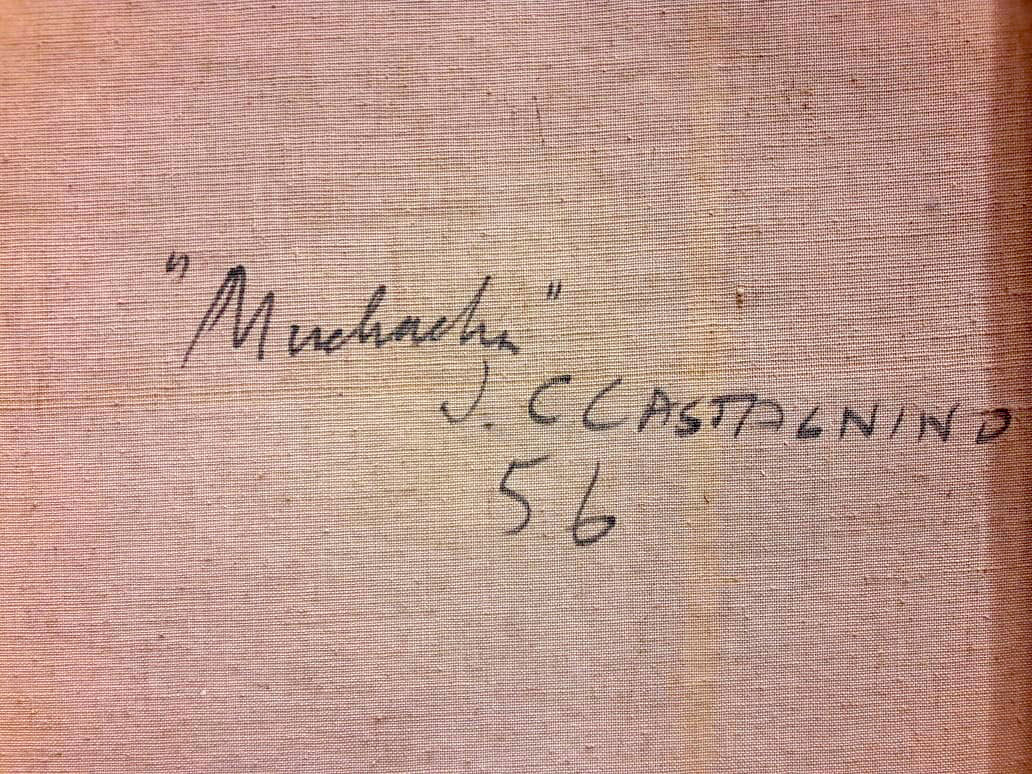 "Muchacha"
J. C CASTAGNINO
56